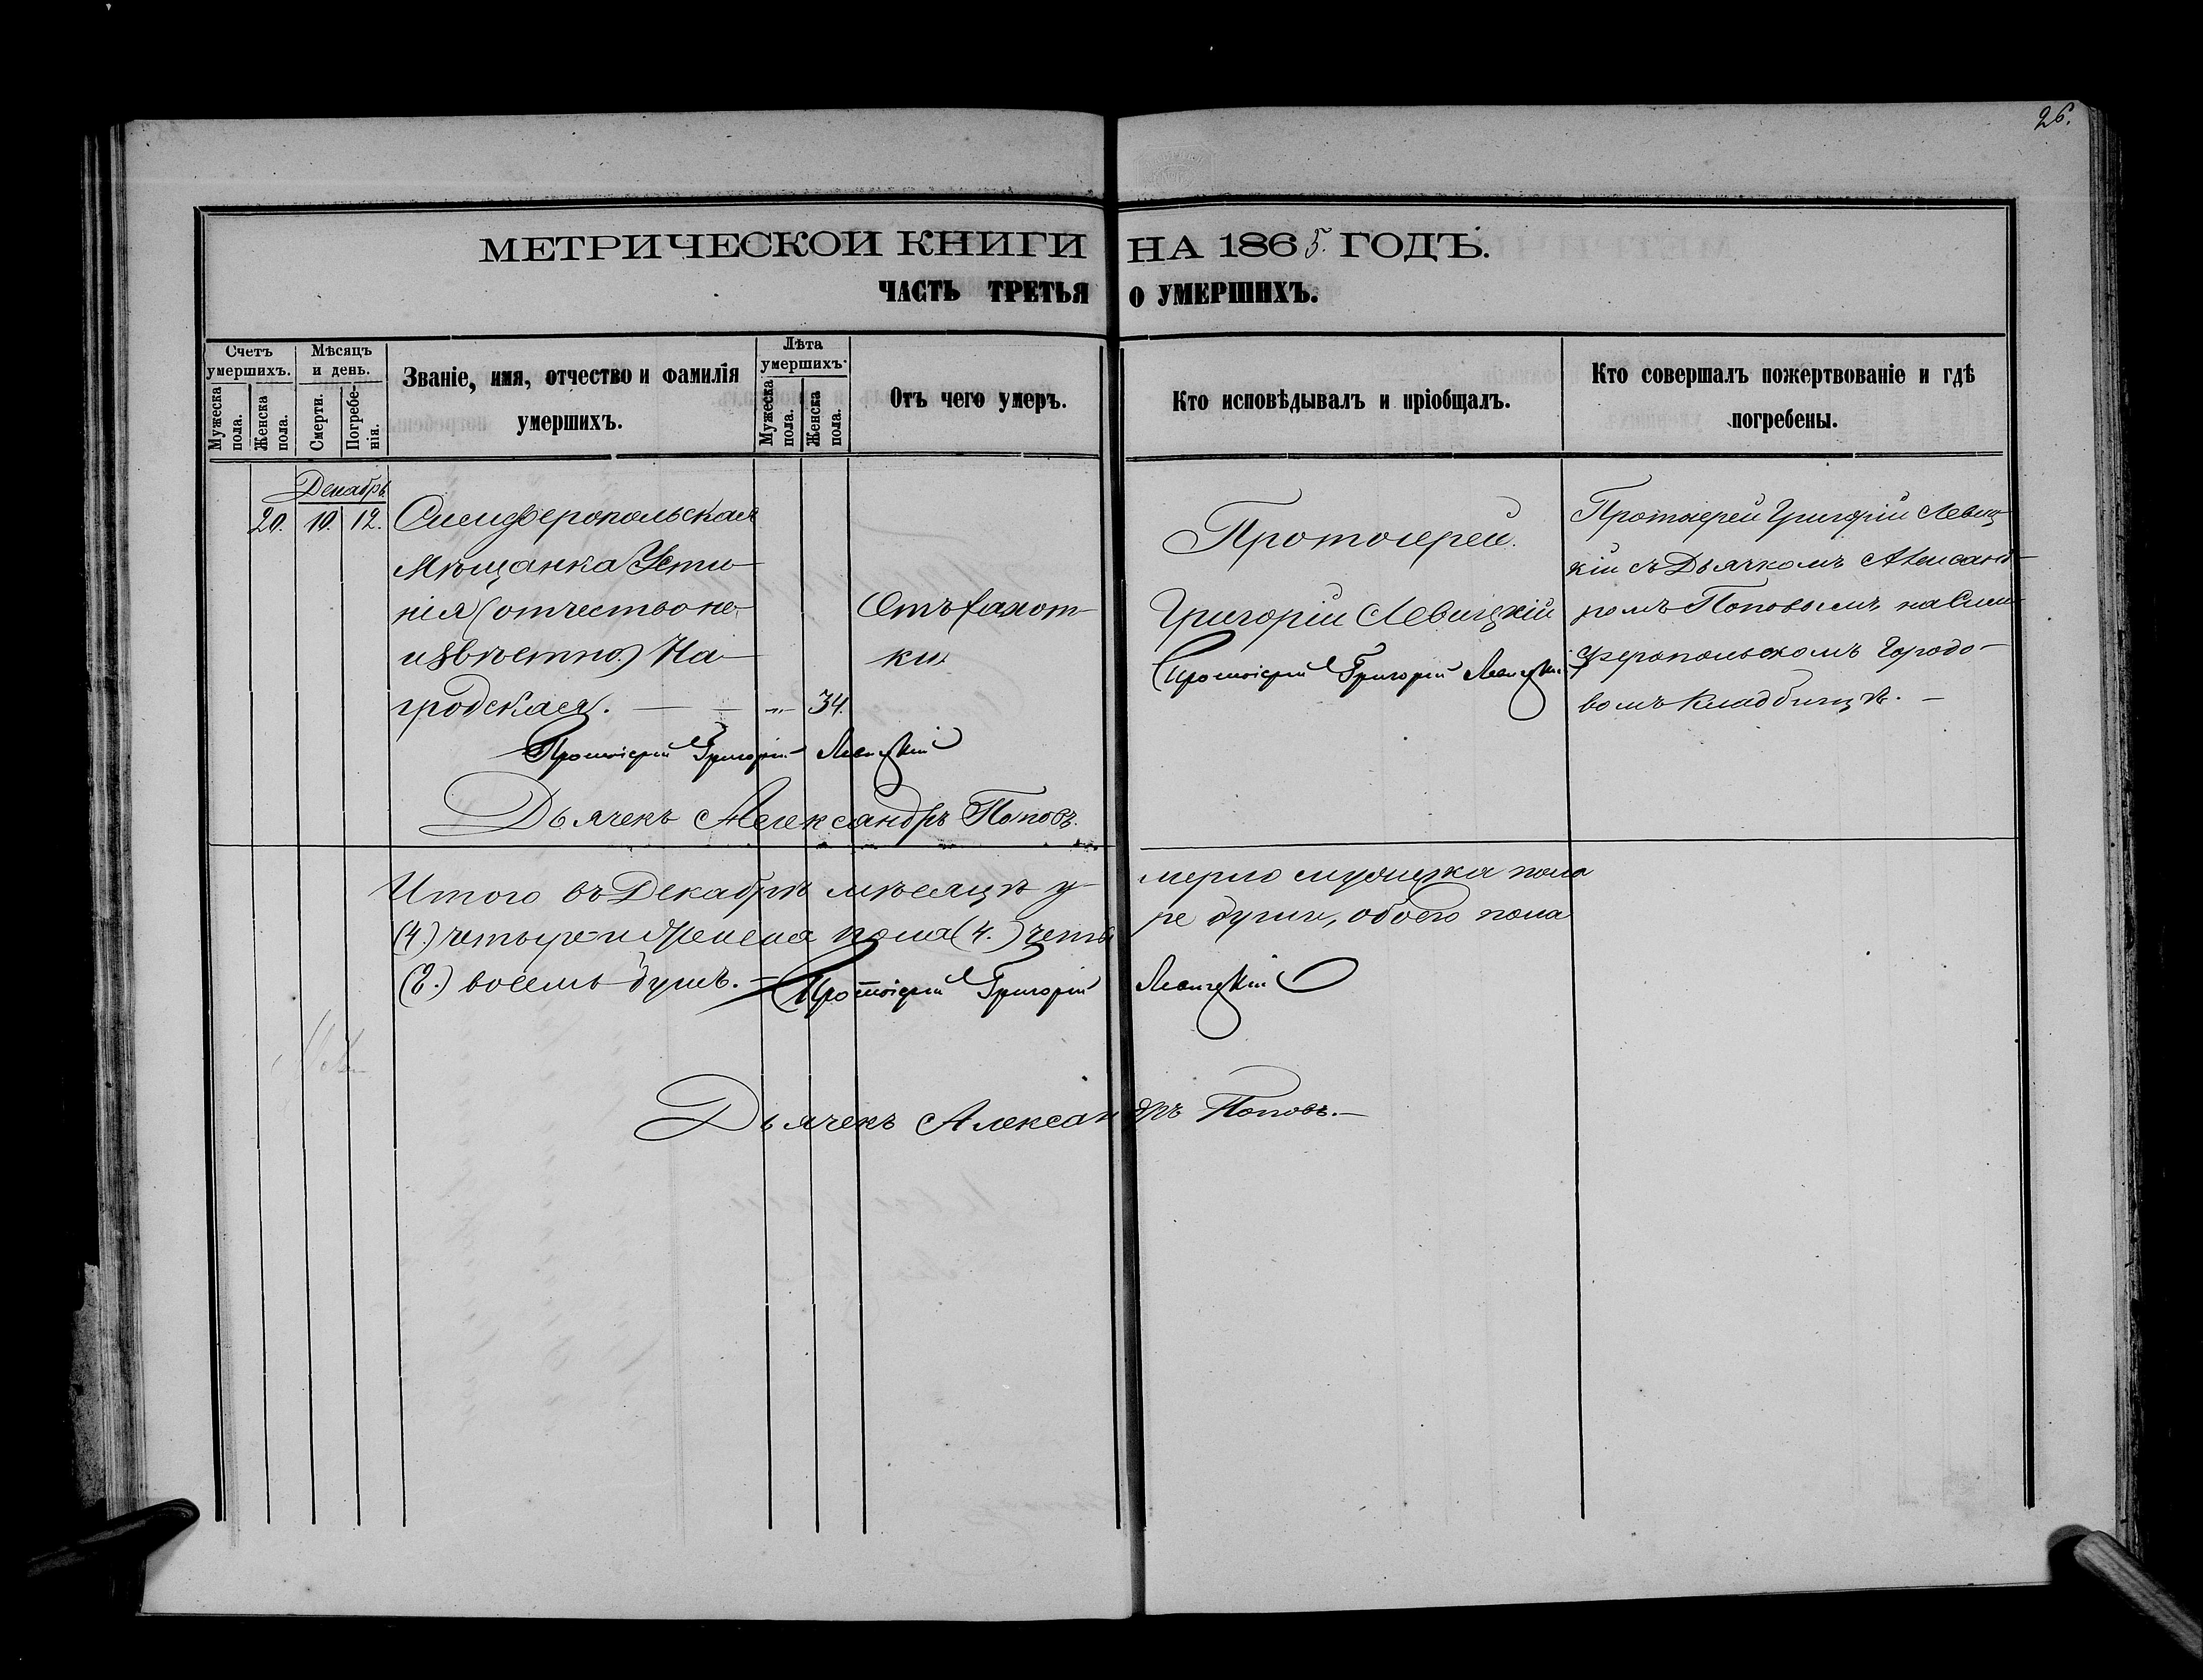 26.
МЕТРИЧЕСКОИ КНИГИ НА 1865. ГОДЪ.
ЧАСТЬ ТРЕТЬЯ О УМЕРШИХЪ.
Счетъ умершихъ.
Мужеска пола.
Женска пола.
Мѣсяцъ и день.
Смерти.
Погребенія.
Званіе, имя, отчество и фамилія
умершихъ.
Лѣта умершихъ
Мужеска пола.
Женска пола.
Отъ чего умеръ.
Кто исповѣдывалъ и пріобщалъ.
Кто совершалъ пожертвованіе и гдѣ
погребены.
Декабрь
20. 10. 12.
Симферопольская
Мѣщанка Усти-
нія (отчество не-
извѣстно) На-
гродская. — — -"- 34.
Отъ чахот-
ки.
Протоіерей
Григорій Левицкій
Протоіерей Григорій Левицкій
Протоіерей Григорій Левиц-
кій съ Дьячкомъ Александ-
ромъ Поповымъ на Сим-
феропольскомъ Городо-
вомъ Кладбищѣ. —
Протоіерей Григорій Левицкій
Дьячекъ Александръ Поповъ.
Итого въ Декабрѣ мѣсяцѣ у- мерло мужеска пола
(4.) четыре и женска пола (4.) четы ре души, обоего пола
(8.) восемь душъ. — Протоіерей Григорій Левицкій
Дьячекъ Александръ Поповъ. —